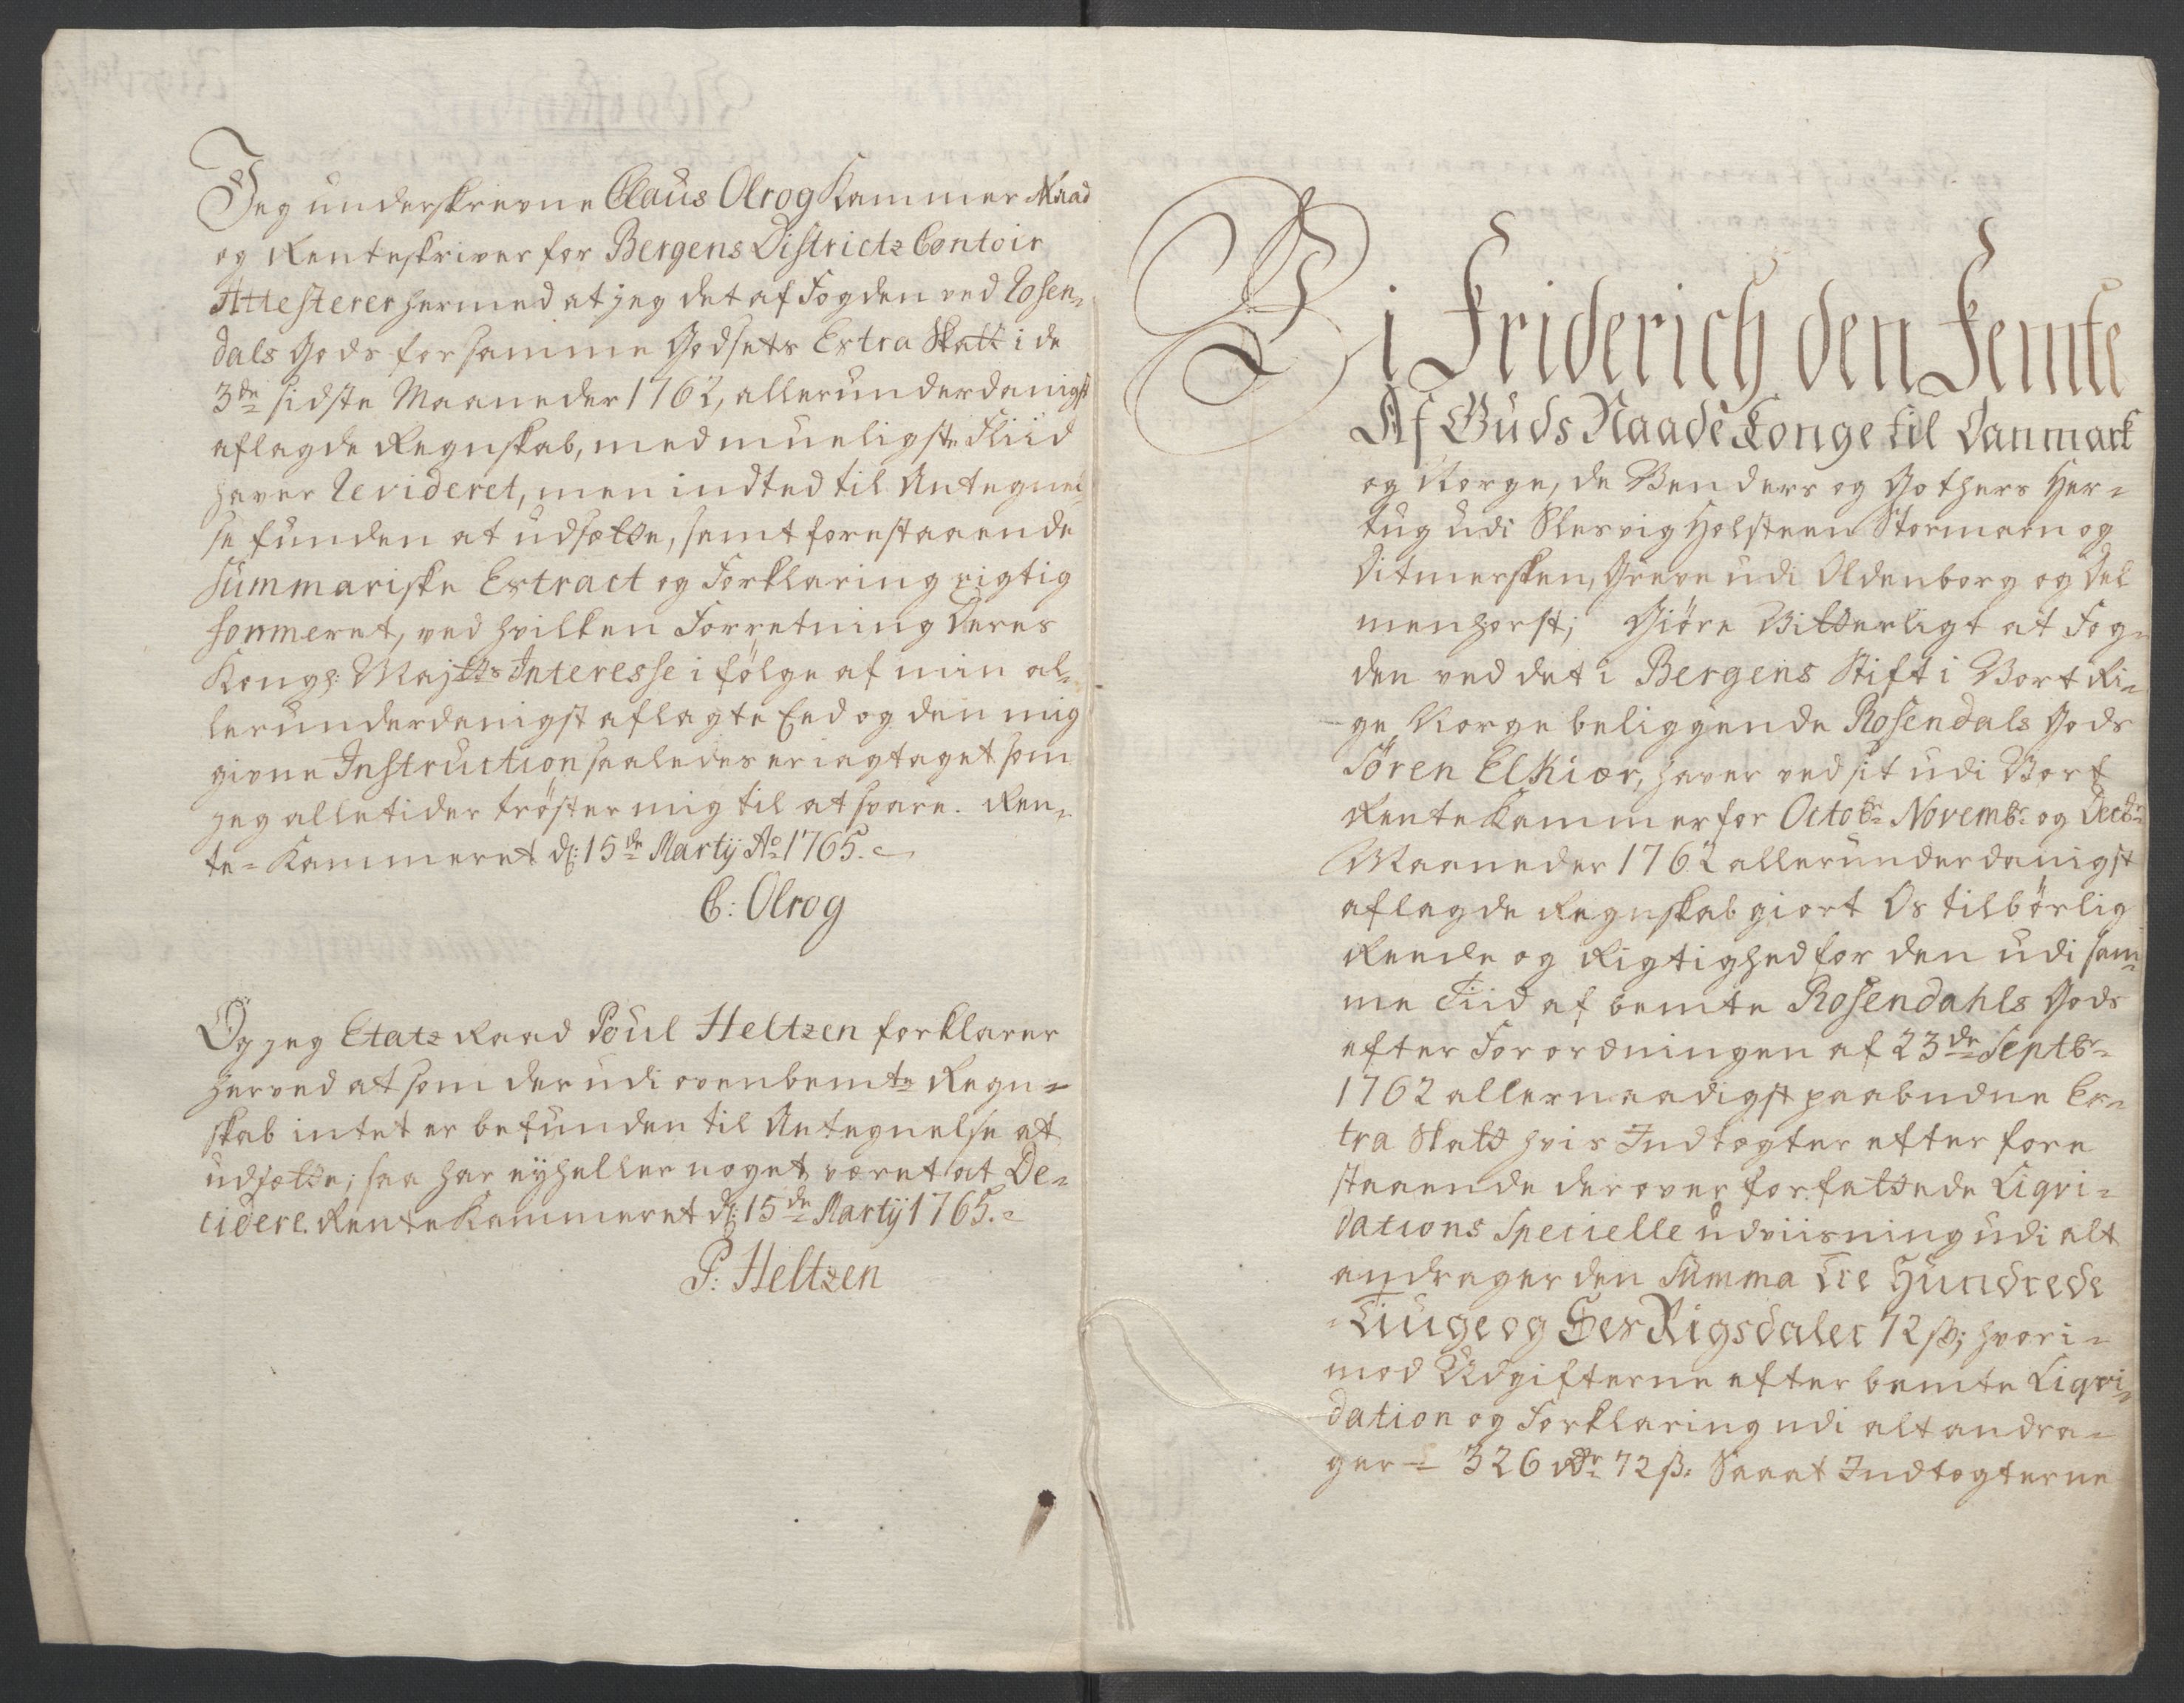 Jeg underskrevne Claus Olrog Kammer Raad
og Renteskriver for Bergens Districtz Contoir
Attesterer hermed at jeg det af Fogden ved Rosen-
dals Gods for samme Godsets Extra Skatt i de
3de sidste Maaneder 1762, allerunderdanigst
aflagde Regnskab, med mueligste Fliid
haver Revideret, men indted til Antegnel-
se funden at udsætte, samt forestaaende
Summariske Extract og Forklaring rigtig
formeret, ved hvilken Forretning Deres
Kongl: Maytts Interesse i følge af min al-
lerunderdanigst aflagte Eed og den mig
givne Instruction saaledes er iagtaget som
jeg alletider trøster mig til at svare. Ren-
te-Kammeret d: 15de Martij Ao 1765.
C: Olrog
Og jeg Etatz Raad Poul Heltzen forklarer
herved at som der udi ovenbemte Regn-
skab intet er befunden til Antegnelse at
udsætte; saa har ey heller noget været at De-
cidere. Rente Kammeret d: 15de Martij 1765.
P: Heltzen
Vi Friderich den Femte
Af Guds Naade Konge til Danmark
og Norge, de Venders og Gothers Her-
tug udi Slesvig Holsteen Stormarn og
Ditmersken, Greve udi Oldenborg og Del
menhorst; Giøre Vitterligt at Fog-
den ved det i Bergens Stift i Vort Ri-
ge Norge beliggende Rosendals Gods
Sören Elkiær, haver ved sit udi Vort
Rente Kammer for Octobr Novembr og Decbr
Maaneder 1762 allerunderdanigst
aflagde Regnskab giort Os tilbørlig
Reede og Rigtighed for den udi sam-
me Tiid af bemte Rosendahls Gods
efter Forordningen af 23de Septbr
1762 allernaadigst paabudne Ex-
tra Skatt hvis Indtægter efter fore
staaende derover forfattede Liqvi-
dations Specielle udviisning udi alt
andrager den Summa Tre Hundrede
Tiuge og Sex Rigsdaler 72 ß; hvori-
mod Udgifterne efter bemte Liqvi-
dation og Forklaring udi alt andra-
ger - 326 Rdr 72 ß: Saa at Indtægterne